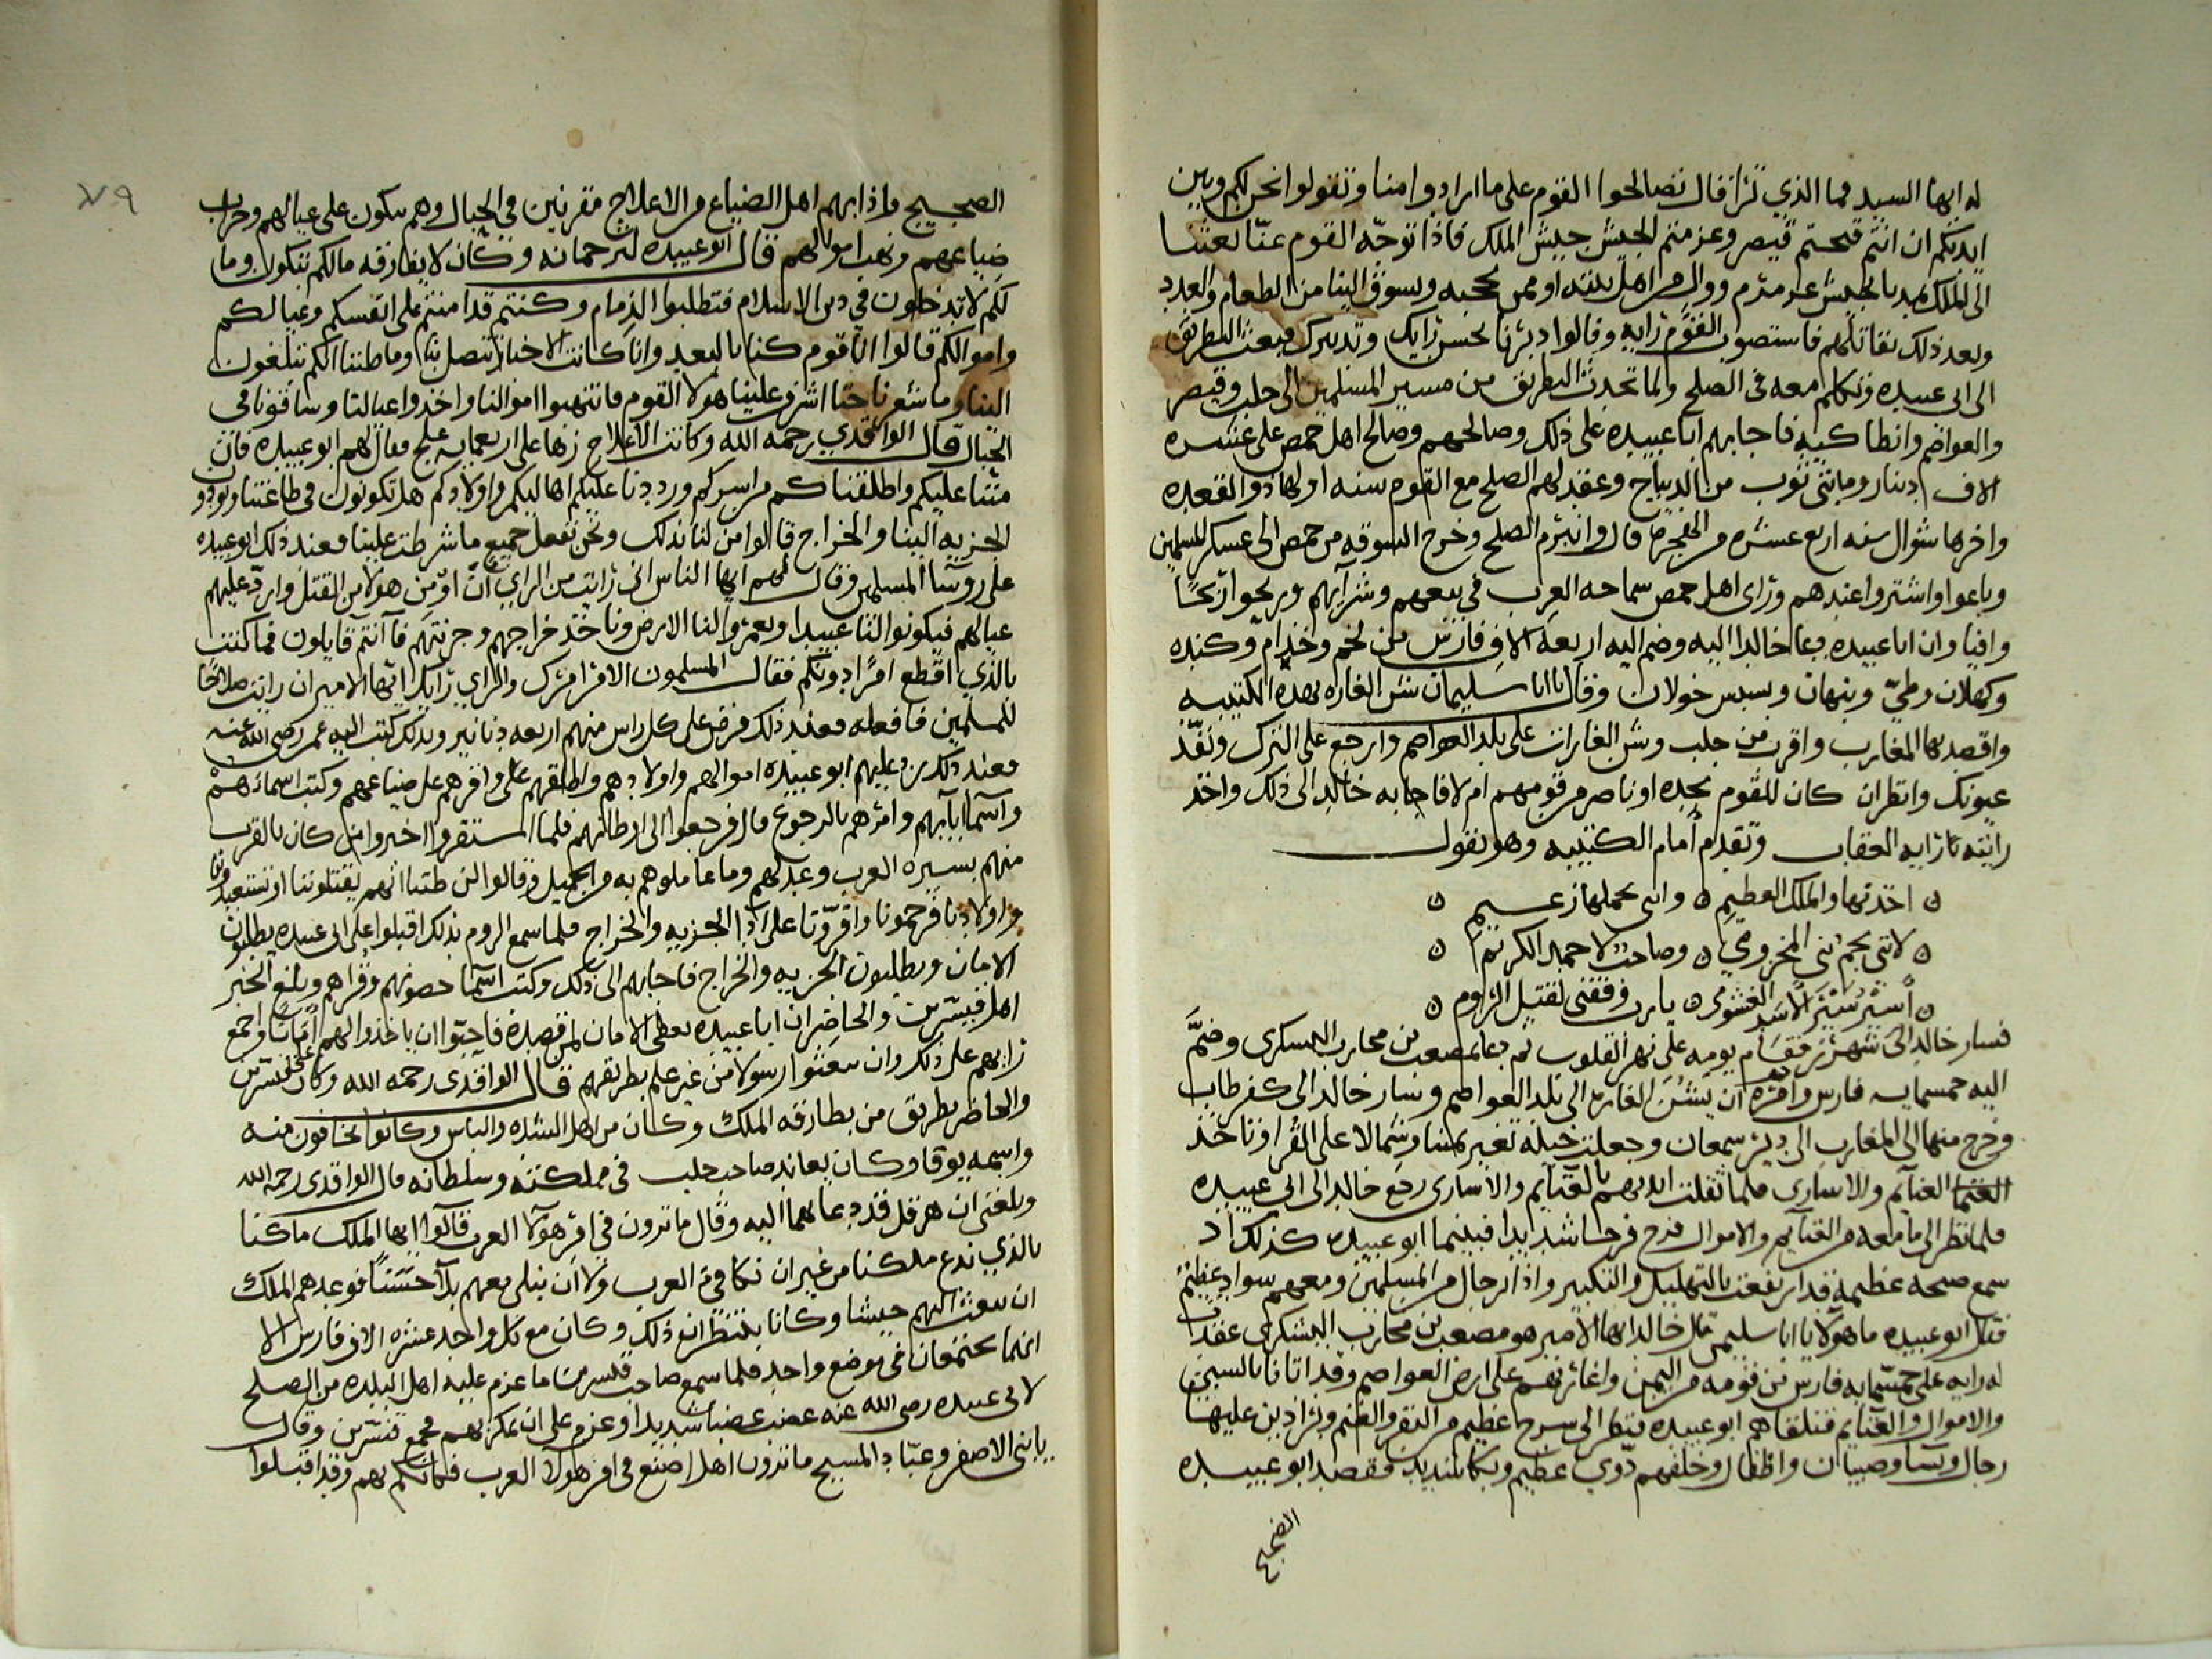 له ايها السيد فما الذي ترا قال تصالحوا القوم على ما ارادوا منا وتقولوا نحن لكم وبين
ايديكم ان انتم فتحتم قيصر وهزمتم الجيش جيش الملك فاذا توجه القوم عنا بعثنا
الى الملك بالجيش عرمرم ووال من اهل بيته او ممن يحجبه ويسوق الينا من الطعام والعدد
وبعد ذلك نقاتلهم فاستصوب القوم رايه وقالوا دبرنا بحسن رايك وتدبيرك فبعث البطريق
الى ابى عبيده وتكلم معه في الصلح ولما تحدث البطريق من مسير المسلمين الى حلب وقيصر
والعواصم وانطاكيه فاجابهم ابا عبيده على ذلك وصالحهم وصالح اهل حمص على عشره
الاف دينار ومايتى ثوب من الديباج وعقد لهم الصلح مع القوم سنه اولها ذو القعده
واخرها شوال سنه اربع عشره من الهجره قال وانبرم الصلح وخرج السوقه من حمص الى عسكر المسلمين
وباعوا واشتروا عندهم وراى اهل حمص سماحه العرب في بيعهم وشرايهم وربحوا ربحًا
وافيا وان ابا عبيده دعا خالدا اليه وضم اليه اربعه الاف فارس من لخم وجذام وكنده
وكهلان وطيّ ونبهان وسبس خولان وقال يا ابا سليمان شن الغاره بهذه الكتيبه
واقصد بها المغارب واقرب من حلب وشن الغارات على بلد العواصم وارجع على الترك ونفّذ
عيونك وانظر ان كان للقوم نجده او ناصر من قومهم ام لا فاجابه خالد الى ذلك واخذ
رايته رايه العقاب وتقدم امام الكتيبه وهو يقول
ه اخذتها والملك العظيم ه وانى بحملها زعيم ه
ه لانى نجم بني المخزومي ه وصاحب لاحمد الكريم ه
ه أسير سير الاسد الغشومى ه يا رب وفقنى لقتيل الروم ه
فسار خالد الى شيزر فقام يومه على نهر القلوب ثم دعا بمصعب بن محارب اليسكرى وضمّ
اليه خمسمايه فارس وامره ان يشن الغاره الى بلد العواصم وسار خالد الى كفرطاب
وخرج منها الى المغارب الى دير سمعان وجعلت خيله تغير يمينا وشمالا على القرا وتاخذ
الغنايم والاسارى فلما ثقلت ايديهم بالغنايم والاسارى رجع خالد الى ابى عبيده
فلما نظر الى ما معه من الغنايم والاموال فرح فرحا شديدا فبينما ابو عبيده كذلك اذ
سمع صيحه عظيمه قد ارتفعت بالتهليل والتكبير واذا رجال من المسلمين ومعهم سواد عظيم
فقال ابو عبيده ما هولا يا ابا سليمن قال خالد ايها الامير هو مصعب بن محارب اليشكرى عقدت
له رايه على خمسمايه فارس من قومه من اليمن واغار بهم على ارض العواصم وقد اتانا بالسبى
والاموال والغنايم فتلقاهم ابو عبيده فنظر الى سرح عظيم من البقر والغنم وبراذين عليها
رجال ونسا وصبيان واطفال وخلفهم دوي عظيم وبكا شديد فقصد ابو عبيده
الضجيج
٧٩
الضجيج واذا بهم اهل الضياع من الاعلاج مقرنين في الحبال وهم يبكون على عيالهم وخراب
ضياعهم ونهب اموالهم قال ابو عبيده لترجمانه وكان لا يفارقه ما لكم تبكون وما
لكم لا تدخلون في دين الاسلام فتطلبوا الذمام وكنتم قد امنتم على انفسكم وعيالكم
واموالكم قالوا انا قوم كنا بالبعيد وانا كانت الاخبار تتصل بنا وما ظننا انكم تبلغون
الينا وما شعرنا حتا اشرف علينا هولا القوم فانتهبوا اموالنا واخذوا عيالنا وساقونا في
الحبال قال الواقدي رحمه الله وكانت الاعلاج زها على اربعمايه علج فقال لهم ابو عبيده فان
مننا عليكم واطلقناكم من اسركم ورددنا عليكم اهاليكم واولادكم هل تكونون في طاعتنا وتودو
الجزيه الينا والخراج قالوا من لنا بذلك ونحن نفعل جميع ما شرطت علينا فعند ذلك ابو عبيده
على روسا المسلمين وقال لهم ايها الناس انى رايت من الراى ان اومن هولا من القتل وارد عليهم
عيالهم فيكونوا لنا عبيدا ويعمروا لنا الارض وناخذ خراجهم وجزيتهم فما انتم قايلون فما كنت
بالذي اقطع امرًا دونكم فقال المسلمون الامر امرك والراي رايك ايها الامير ان رايت صلاحًا
للمسلمين فافعله فعند ذلك فرض على كل راس منهم اربعه دنانير وبذلك كتب اليه عمر رضي الله عنه
فعند ذلك رد عليهم ابو عبيده اموالهم واولادهم واطلقهم واقرهم على ضياعهم وكتب اسماءهم
واسما ابايهم وامرهم بالرجوع قال فرجعوا الى اوطانهم فلما استقروا اخبروا من كان بالقرب
منهم بسيره العرب وعدلهم وما عاملوهم به من الجميل وقالوا لن ظننا انهم يقتلوننا او يستعبدونا
واولادنا فرحمونا واقرونا على ادا الجزيه والخراج فلما سمع الروم بذلك اقبلوا على ابى عبيده يطلبون
الامان ويطلبون الجزيه والخراج فاجابهم الى ذلك وكتب اسما حصونهم وقراهم وبلغ الخبر
اهل قنسرين والحاضر ان ابا عبيده يعطى الامان لمن قصده فاحبوا ان ياخذوا لهم أمانا واجمع
رايهم على ذلك وان يبعثوا رسولا من غير علم بطريقهم قال الواقدى رحمه الله وكان على قنسرين
والحاضر بطريق من بطارقه الملك وكان من اهل الشده والباس وكانوا يخافون منه
واسمه يوقا وكان يعاند صاحب حلب في مملكته وسلطانه قال الواقدى رحمه الله
وبلغنى ان هرقل قد دعا بهما اليه وقال ما ترون في امر هولا العرب قالوا ايها الملك ما كنا
بالذي ندع ملكنا من غير ان نكافي العرب ولا ان نبلى معهم بلآ حسنًا فوعدهم الملك
ان يبعث اليهم جيشا وكانا ينتظران ذلك وكان مع كل واحد عشره الاف فارس الا
انهما يجتمعان في موضع واحد فلما سمع صاحب قنسرين ما عزم عليه اهل البلده من الصلح
لابى عبيده رضى الله عنه غضب غضبا شديدا وعزم على ان يمكر بهم فجمع قنسرين وقال
يا بنى الاصفر وعبّاد المسيح ما ترون اهل اصنع في امر هولا العرب فكانكم بهم وقد اقبلوا